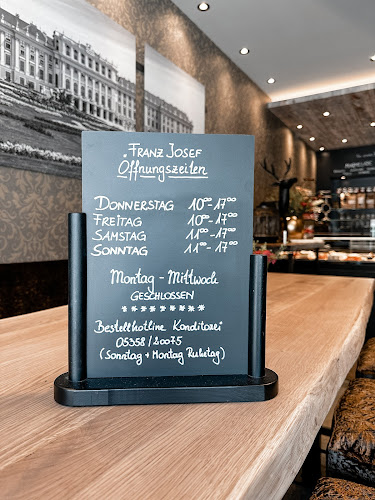 Franz Josef
Öffnungszeiten
Donnerstag 10⁰⁰-17⁰⁰
Freitag 10⁰⁰-17⁰⁰
Samstag 11⁰⁰-17⁰⁰
Sonntag 11⁰⁰-17⁰⁰
Montag - Mittwoch
GESCHLOSSEN
* * * * * * * *
Bestellhotline Konditorei
05358/20075
(Sonntag + Montag Ruhetag)